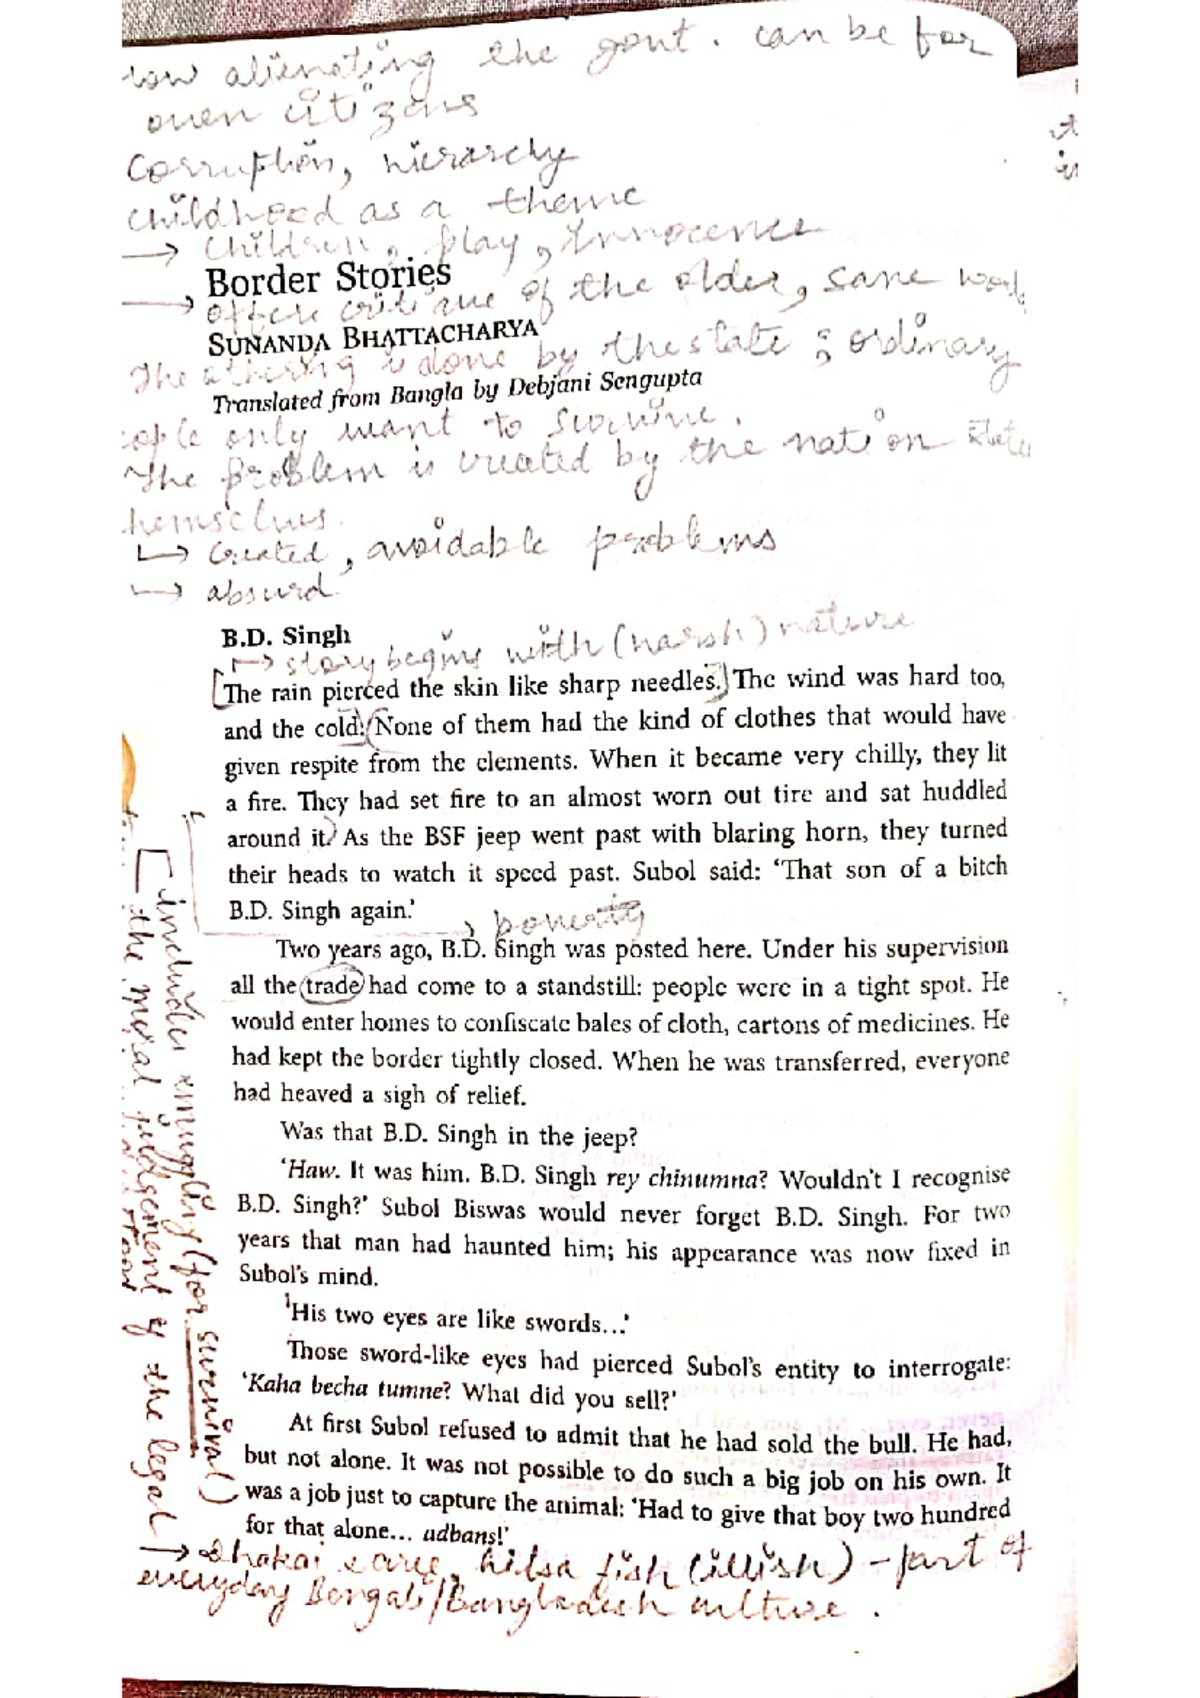 how alienating the govt. can be for
even citizens
Corruption, hierarchy
childhood as a theme
→ Children, play, Innocence
Border Stories
→ offers critique of the older, sane world
SUNANDA BHATTACHARYA
The othering is done by the state ; ordinary
Translated from Bangla by Debjani Sengupta
people only want to survive.
The problem is created by the nation state
themselves.
↳ Created, avoidable problems
↳ absurd
B.D. Singh
↳ story begins with (harsh) nature
The rain pierced the skin like sharp needles. The wind was hard too,
and the cold. None of them had the kind of clothes that would have
given respite from the elements. When it became very chilly, they lit
a fire. They had set fire to an almost worn out tire and sat huddled
around it. As the BSF jeep went past with blaring horn, they turned
their heads to watch it speed past. Subol said: ‘That son of a bitch
B.D. Singh again.’
→ poverty
Two years ago, B.D. Singh was posted here. Under his supervision
all the trade had come to a standstill: people were in a tight spot. He
would enter homes to confiscate bales of cloth, cartons of medicines. He
had kept the border tightly closed. When he was transferred, everyone
had heaved a sigh of relief.
Was that B.D. Singh in the jeep?
‘Haw. It was him. B.D. Singh rey chinumna? Wouldn’t I recognise
B.D. Singh?’ Subol Biswas would never forget B.D. Singh. For two
years that man had haunted him; his appearance was now fixed in
Subol’s mind.
‘His two eyes are like swords...’
Those sword-like eyes had pierced Subol’s entity to interrogate:
‘Kaha becha tumne? What did you sell?’
At first Subol refused to admit that he had sold the bull. He had,
but not alone. It was not possible to do such a big job on his own. It
was a job just to capture the animal: ‘Had to give that boy two hundred
for that alone... udbans!’
includes smuggling (for survival)
the moral judgement of the legal
→ Dhakai saree, hilsa fish (illish) - part of
everyday Bengali/Bangladesh culture.